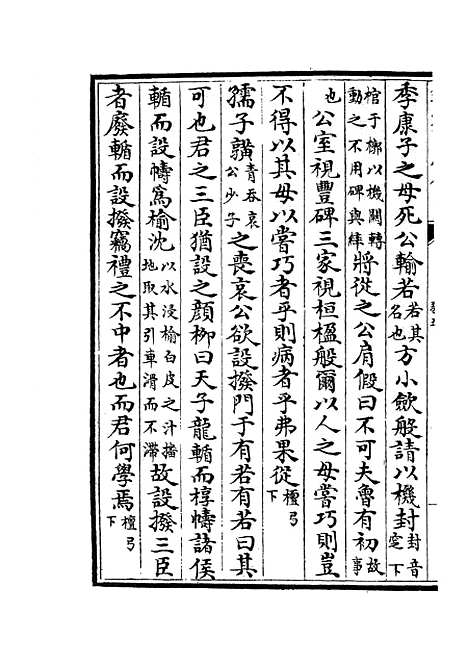 季康子之母死公輸若若其名也方小歛般請以機封封音窆下
棺于槨以機關轉動之不用碑與繂將從之公肩假曰不可夫魯有初故事
也公室視豐碑三家視桓楹般爾以人之母嘗巧則豈
不得以其毋以嘗巧者乎則病者乎弗果從檀弓下
孺子䵍吞哀公少子之喪哀公欲設撥門于有若有若曰其
可也君之三臣猶設之顔柳曰天子龍輴而椁幬諸侯
輴而設幬為榆沈以水浸榆白皮之汁播地取其引車滑而不滯故設撥三臣
者廢輴而設撥竊禮之不中者也而君何學焉檀弓下